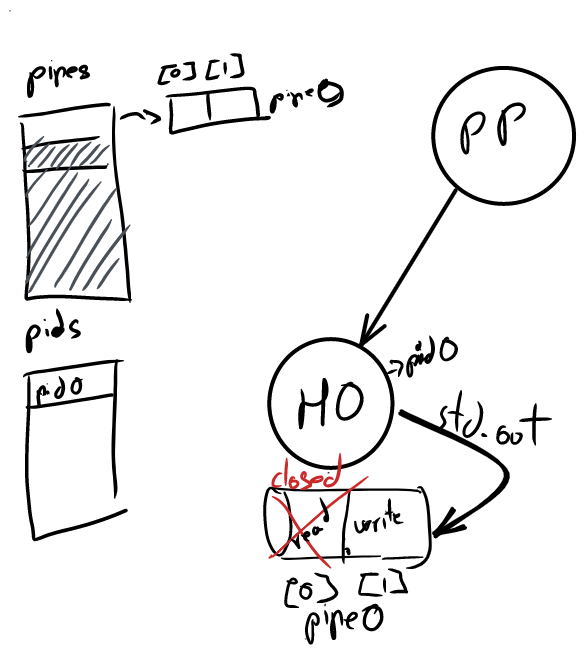 pipes
[0] [1]
pipe0
PP
pids
pid0
pid0
H0
std.out
closed
read
write
[0] [1]
pipe0